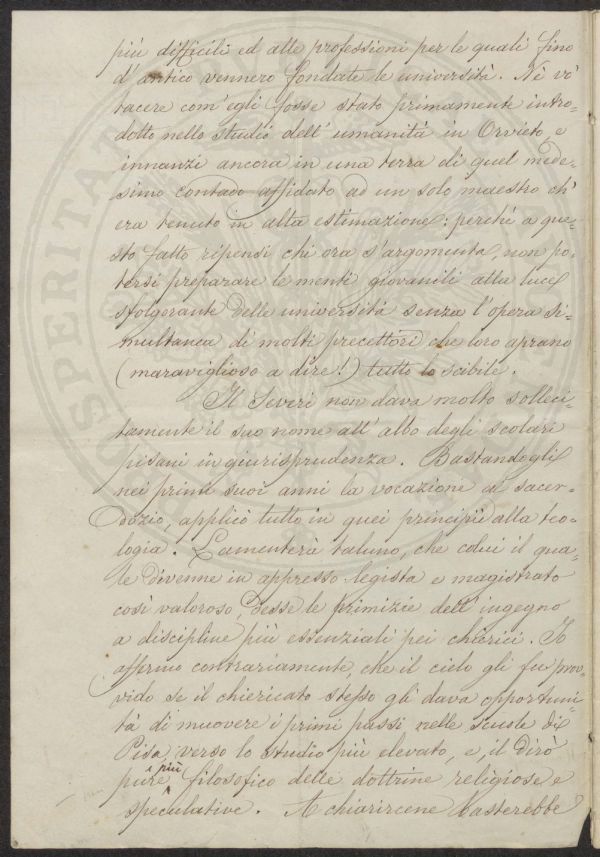 più difficili ed alle professioni per le quali fino
d'antico vennero fondate le università. Nè vò
tacere com'egli fosse stato primamente intro-
dotto nello studio dell'umanità in Orvieto, e
innanzi ancora in una terra di quel mede-
simo contado affidato ad un solo maestro ch'
era tenuto in alta estimazione: perchè a que-
sto fatto ripensi chi ora s'argomenta, non po-
tersi preparare le menti giovanili alla luce
sfolgorante delle università senza l'opera si-
multanea di molti precettori che loro aprano
(maraviglioso a dire!) tutto lo scibile.
Il Severi non dava molto solleci-
tamente il suo nome all'albo degli scolari
pisani in giurisprudenza. Bastandogli
nei primi suoi anni la vocazione al sacer-
dozio, applicò tutto in quei principii alla teo-
logia. Lamenterà taluno, che colui il qua-
le divenne in appresso legista e magistrato
così valoroso, desse le primizie dell'ingegno
a discipline più essenziali pei chierici. Io
affermo contrariamente, che il cielo gli fu prov-
vido se il chiericato stesso gli dava opportuni-
tà di muovere i primi passi nelle scuole di
Pisa, verso lo studio più elevato, e, il dirò
pure, più filosofico delle dottrine religiose e
speculative. A chiarircene basterebbe